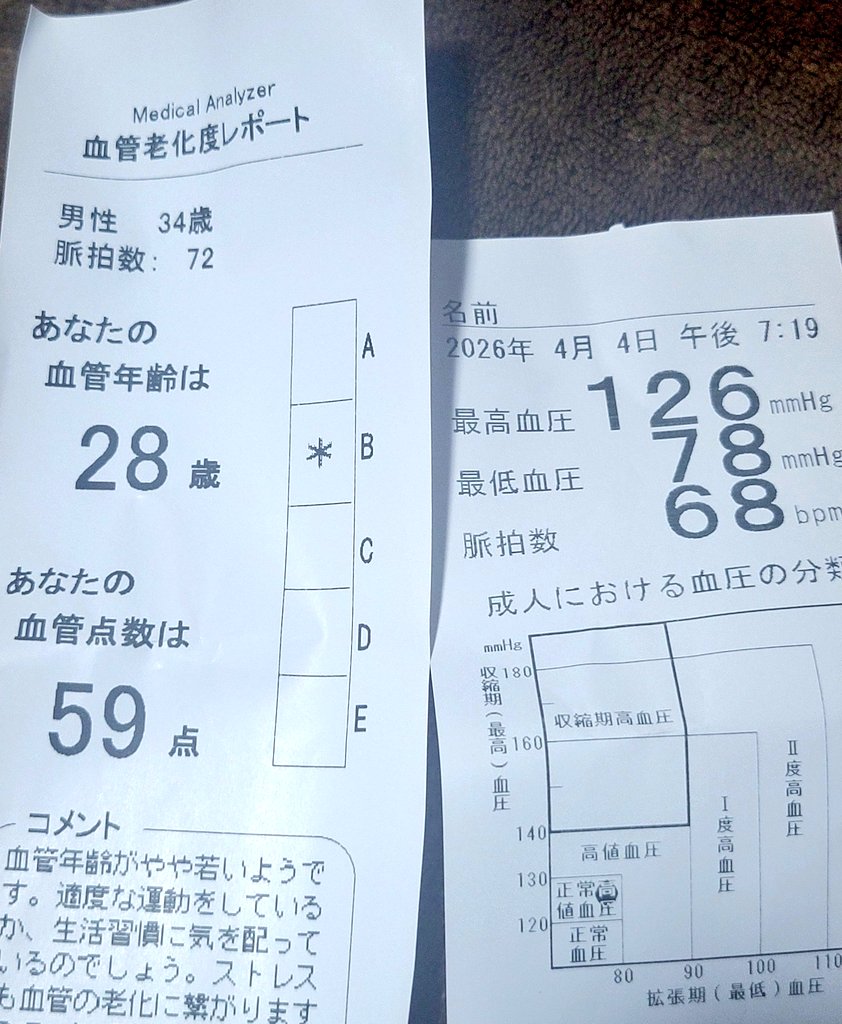 Medical Analyzer
血管老化度レポート
男性 34歳
脈拍数: 72
あなたの
血管年齢は
28 歳
A
B
*
C
D
E
あなたの
血管点数は
59 点
コメント
血管年齢がやや若いようで
す。適度な運動をしている
か、生活習慣に気を配って
いるのでしょう。ストレス
も血管の老化に繋がります
名前
2026年 4月 4日 午後 7:19
最高血圧 126 mmHg
最低血圧 78 mmHg
脈拍数 68 bpm
成人における血圧の分類
mmHg
収縮期(最高)血圧
180
160
140
130
120
収縮期高血圧
Ⅱ度高血圧
Ⅰ度高血圧
高値血圧
正常高
値血圧
正常
血圧
80 90 100 110
拡張期(最低)血圧